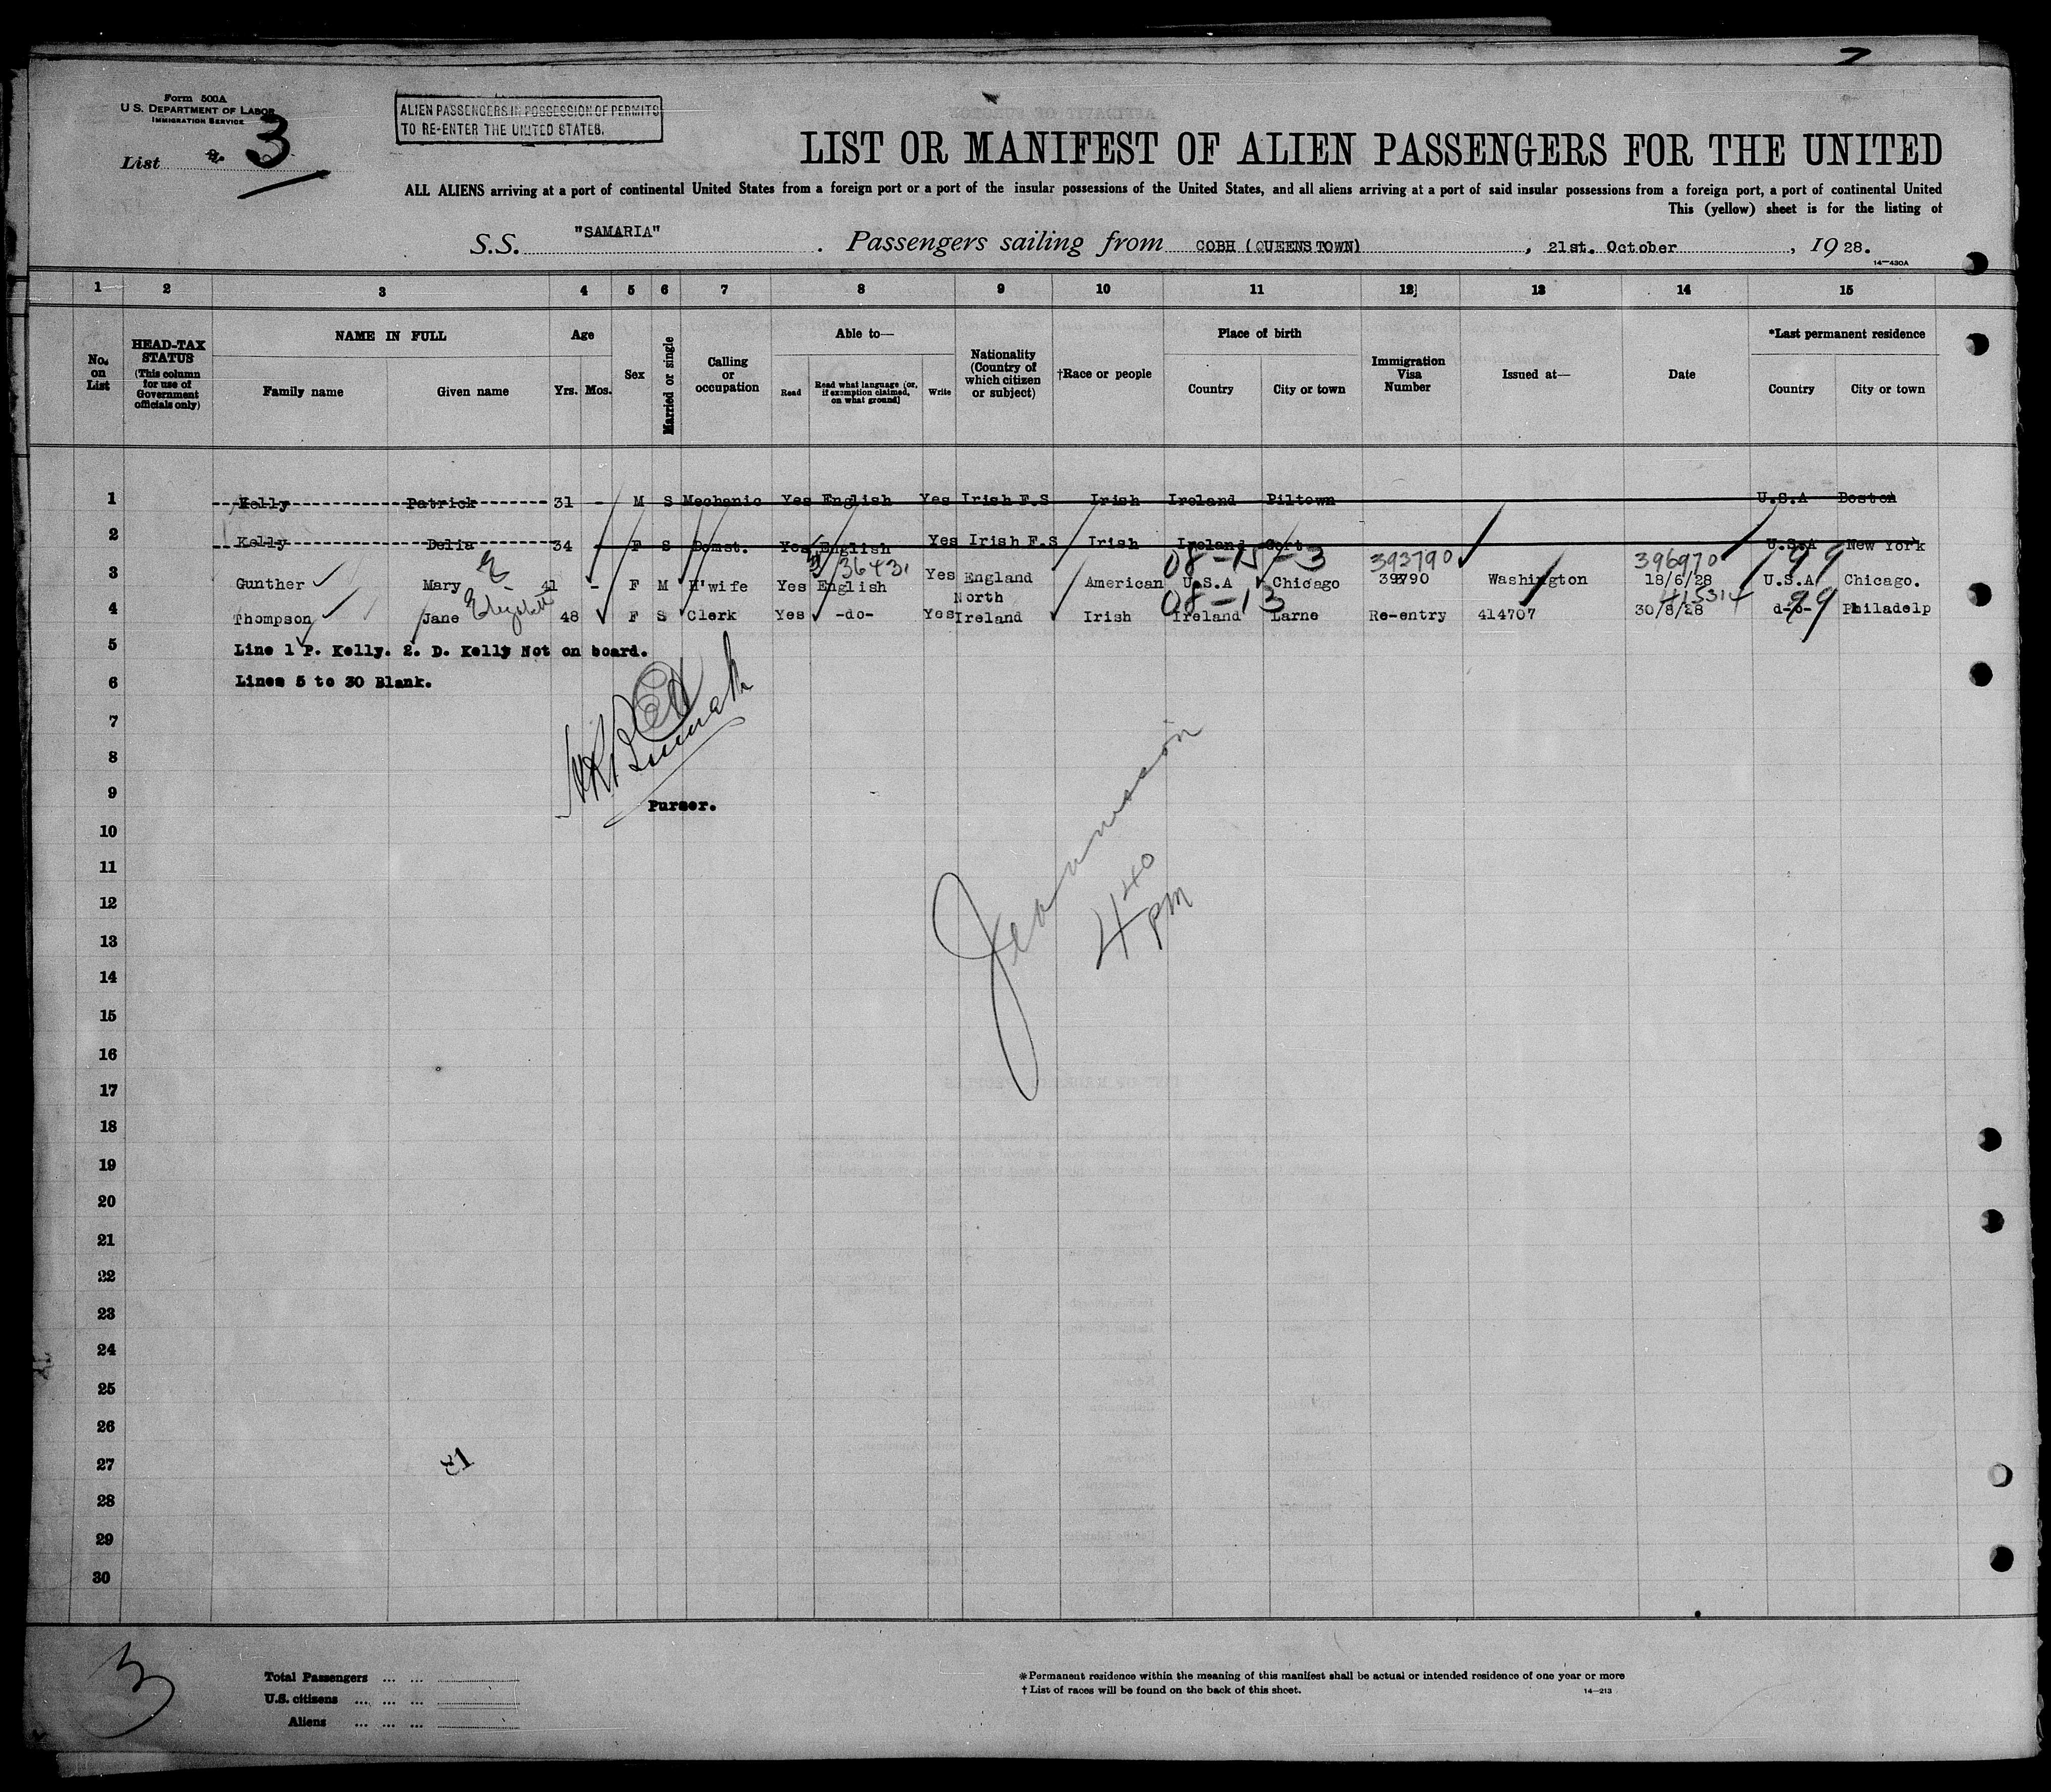 Form 500A
U.S. DEPARTMENT OF LABOR
IMMIGRATION SERVICE
List 3
ALIEN PASSENGERS IN POSSESSION OF PERMITS
TO RE-ENTER THE UNITED STATES.
LIST OR MANIFEST OF ALIEN PASSENGERS FOR THE UNITED
ALL ALIENS arriving at a port of continental United States from a foreign port or a port of the insular possessions of the United States, and all aliens arriving at a port of said insular possessions from a foreign port, a port of continental United
This (yellow) sheet is for the listing of
S.S. "SAMARIA". Passengers sailing from COBH (QUEENSTOWN), 21st. October, 1928.
14—430A
1 2 3 4 5 6 7 8 9 10 11 12] 13 14 15
No. on List
HEAD-TAX STATUS (This column for use of Government officials only)
NAME IN FULL
Family name Given name
Age
Yrs. Mos.
Sex
Married or single
Calling or occupation
Able to—
Read Read what language [or, if exemption claimed, on what ground] Write
Nationality (Country of which citizen or subject)
†Race or people
Place of birth
Country City or town
Immigration Visa Number
Issued at—
Date
*Last permanent residence
Country City or town
1 Kelly Patrick 31 - M S Mechanic Yes English Yes Irish F.S Irish Ireland Piltown U.S.A Boston
2 Kelly Delia 34 F S Domst. Yes English Yes Irish F.S Irish Ireland Gort U.S.A New York
08-15-3 393790 396970 99
3 Gunther Mary E 41 - F M H'wife Yes English Yes England American U.S.A Chicago Washington 18/6/28 U.S.A Chicago.
08-13 415314 99
4 Thompson Jane Elizabeth 48 F S Clerk Yes -do- Yes North Ireland Irish Ireland Larne Re-entry 414707 30/8/28 d-o- Philadelp
5 Line 1 P. Kelly. 2. D. Kelly Not on board.
6 Lines 5 to 30 Blank.
7
8
9
Purser.
10
11
12
4 40
pm
13
14
15
16
17
18
19
20
21
22
23
24
25
26
27
28
29
30
3
Total Passengers ... ...
U.S. citizens ... ... ...
Aliens ... ... ...
*Permanent residence within the meaning of this manifest shall be actual or intended residence of one year or more
†List of races will be found on the back of this sheet.
14—213